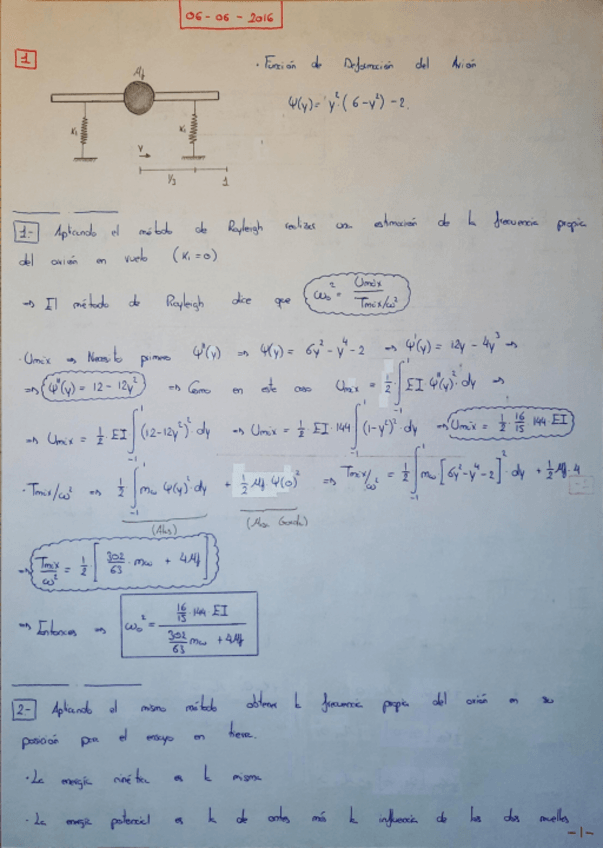 06-06-2016
1
· Función de Deformación del Avión
Ψ(y) = y²(6-y²)-2.
Mf
K₁ K₁
y
1
1- Aplicando el método de Rayleigh realizar una estimación de la frecuencia propia
del avión en vuelo (K₁=0)
⇒ El método de Rayleigh dice que ω₀² = Umáx / Tmáx/ω²
· Umáx ⇒ Necesito primero Ψ''(y) ⇒ Ψ(y) = 6y²-y⁴-2 ⇒ Ψ'(y) = 12y-4y³ ⇒
⇒ Ψ''(y) = 12-12y² ⇒ Como en este caso Umáx = 1/2 · ∫₋₁¹ EI Ψ''(y)² · dy ⇒
⇒ Umáx = 1/2 · EI ∫₋₁¹ (12-12y²)² · dy ⇒ Umáx = 1/2 · EI · 144 ∫₋₁¹ (1-y²)² · dy ⇒ Umáx = 1/2 · 16/15 · 144 · EI
· Tmáx/ω² ⇒ 1/2 ∫₋₁¹ mω Ψ(y)² · dy + 1/2 Mf Ψ(0)² ⇒ Tmáx/ω² = 1/2 ∫₋₁¹ mω [6y²-y⁴-2]² · dy + 1/2 Mf · 4
(Alas)
⇒ Tmáx/ω² = 1/2 [302/63 · mω + 4Mf]
⇒ Entonces ⇒ ω₀² = 16/15 · 144 EI / 302/63 mω + 4Mf
2- Aplicando el mismo método obtener la frecuencia propia del avión en su
posición para el ensayo en tierra.
· La energía cinética es la misma
· La energía potencial es la de antes más la influencia de los dos muelles
-1-